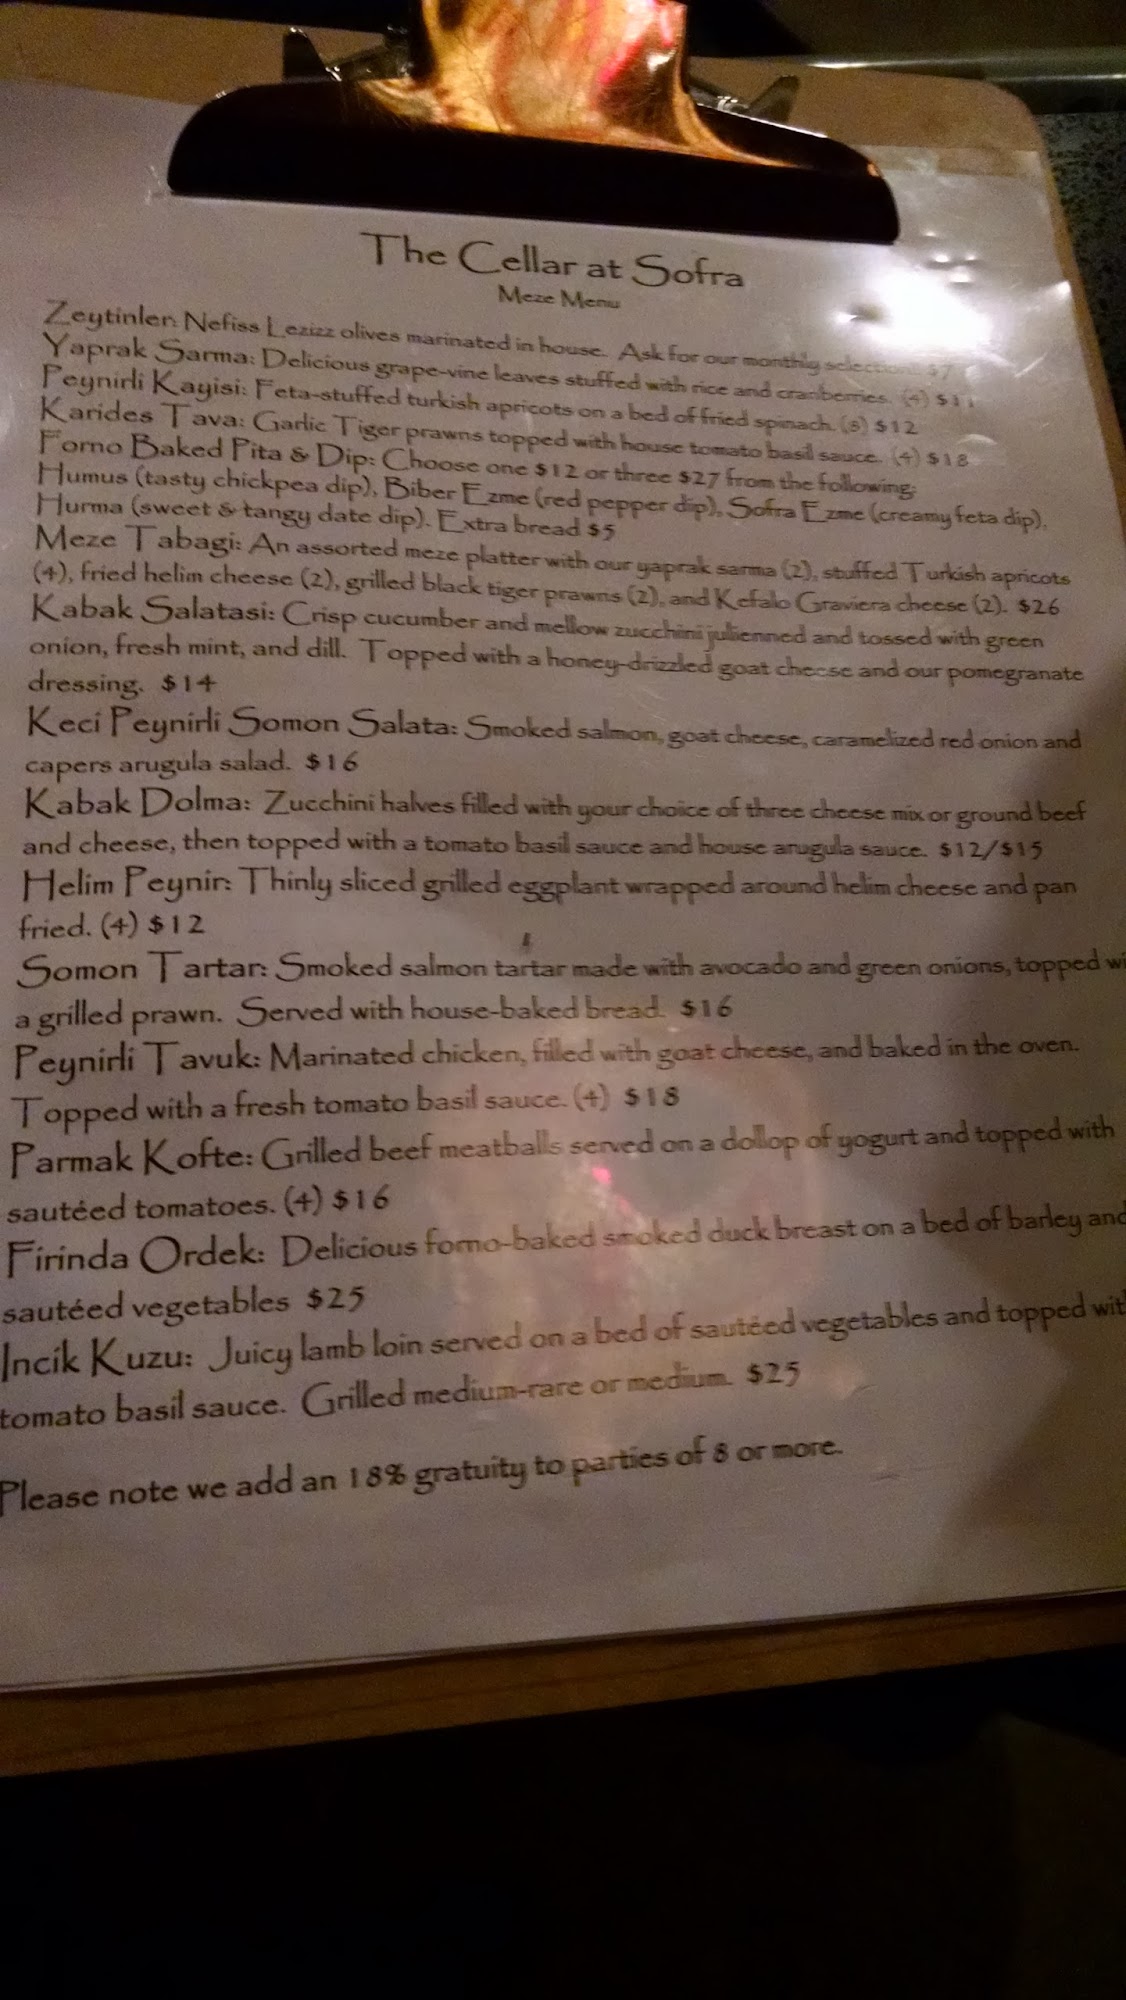 The Cellar at Sofra
Meze Menu
Zeytinler: Nefiss Lezizz olives marinated in house. Ask for our monthly selection!! $7
Yaprak Sarma: Delicious grape-vine leaves stuffed with rice and cranberries. (4) $11
Peynirli Kayisi: Feta-stuffed turkish apricots on a bed of fried spinach. (8) $12
Karides Tava: Garlic Tiger prawns topped with house tomato basil sauce. (4) $18
Forno Baked Pita & Dip: Choose one $12 or three $27 from the following:
Humus (tasty chickpea dip), Biber Ezme (red pepper dip), Sofra Ezme (creamy feta dip),
Hurma (sweet & tangy date dip). Extra bread $5
Meze Tabagi: An assorted meze platter with our yaprak sarma (2), stuffed Turkish apricots
(4), fried helim cheese (2), grilled black tiger prawns (2), and Kefalo Graviera cheese (2). $26
Kabak Salatasi: Crisp cucumber and mellow zucchini julienned and tossed with green
onion, fresh mint, and dill. Topped with a honey-drizzled goat cheese and our pomegranate
dressing. $14
Keci Peynirli Somon Salata: Smoked salmon, goat cheese, caramelized red onion and
capers arugula salad. $16
Kabak Dolma: Zucchini halves filled with your choice of three cheese mix or ground beef
and cheese, then topped with a tomato basil sauce and house arugula sauce. $12/$15
Helim Peynir: Thinly sliced grilled eggplant wrapped around helim cheese and pan
fried. (4) $12
Somon Tartar: Smoked salmon tartar made with avocado and green onions, topped wi
a grilled prawn. Served with house-baked bread. $16
Peynirli Tavuk: Marinated chicken, filled with goat cheese, and baked in the oven.
Topped with a fresh tomato basil sauce. (4) $18
Parmak Kofte: Grilled beef meatballs served on a dollop of yogurt and topped with
sautéed tomatoes. (4) $16
Firinda Ordek: Delicious forno-baked smoked duck breast on a bed of barley and
sautéed vegetables $25
Incik Kuzu: Juicy lamb loin served on a bed of sautéed vegetables and topped wit
tomato basil sauce. Grilled medium-rare or medium. $25
Please note we add an 18% gratuity to parties of 8 or more.